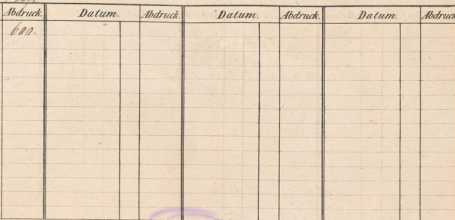 Abdruck. Datum. Abdruck. Datum. Abdruck. Datum. Abdruck.
600.